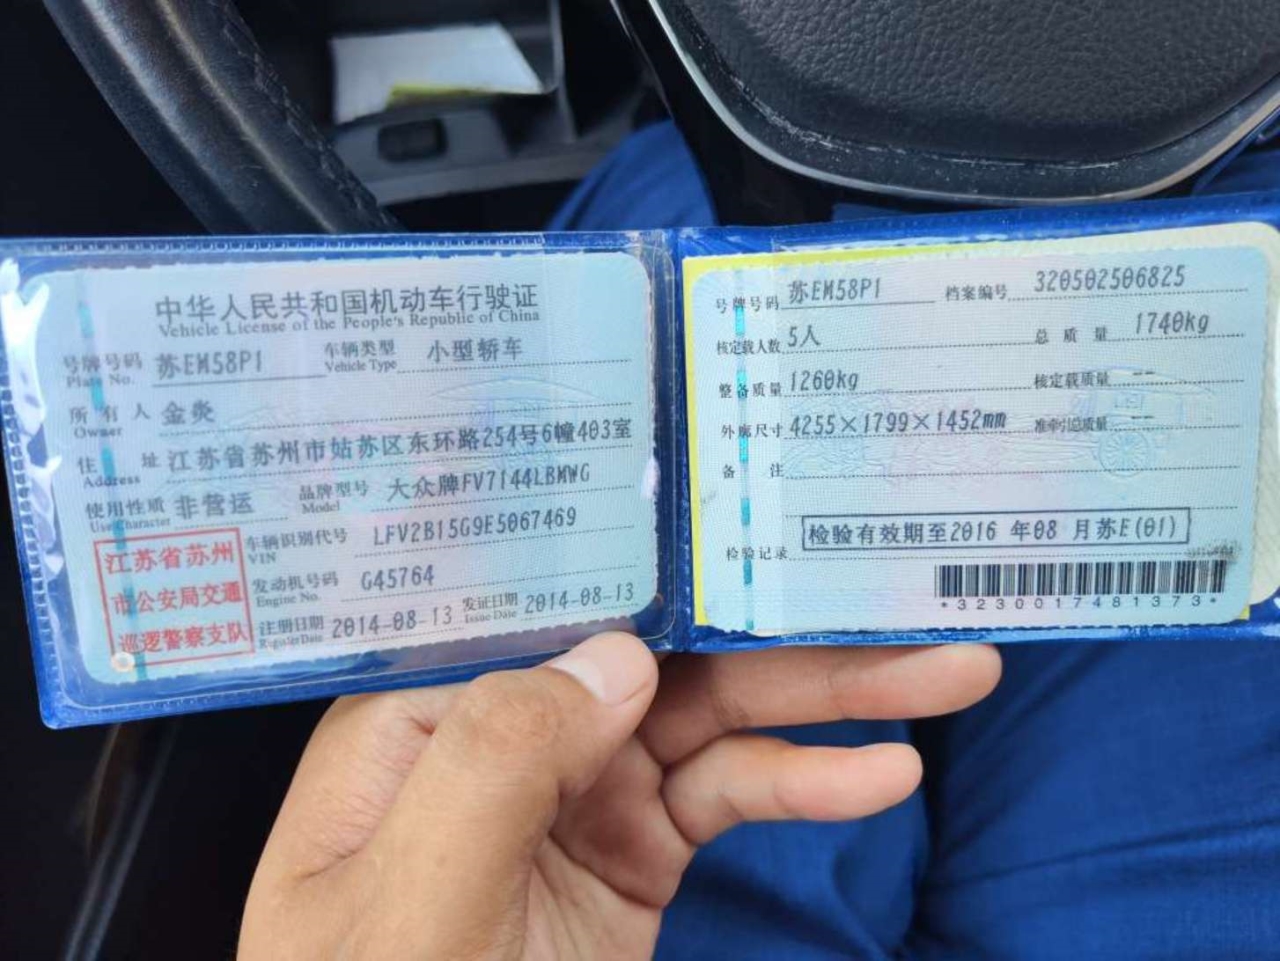 中华人民共和国机动车行驶证
Vehicle License of the People's Republic of China
号牌号码 苏EM58P1 车辆类型 小型轿车
Plate No. Vehicle Type
所有人 金炎
Owner
住址 江苏省苏州市姑苏区东环路254号6幢403室
Address
使用性质 非营运 品牌型号 大众牌FV7144LBMWG
Use Character Model
江苏省苏州
市公安局交通
巡逻警察支队
车辆识别代号 LFV2B15G9E5067469
VIN
发动机号码 G45764
Engine No.
注册日期 2014-08-13 发证日期 2014-08-13
Register Date Issue Date
号牌号码 苏EM58P1 档案编号 320502506825
核定载人数 5人 总质量 1740kg
整备质量 1260kg 核定载质量 --
外廓尺寸 4255×1799×1452mm 准牵引总质量 --
备注
检验记录 检验有效期至2016 年08 月苏E(01)
*3230017481373*